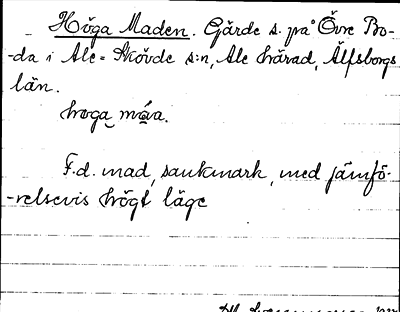 Höga Maden. Gärde s. på Övre Bo-
-da i Ale-Skövde s:n, Ale härad, Älfsborgs
län.
hoga máva.
F.d. mad, sankmark, med jämfö-
-relsevis högt läge